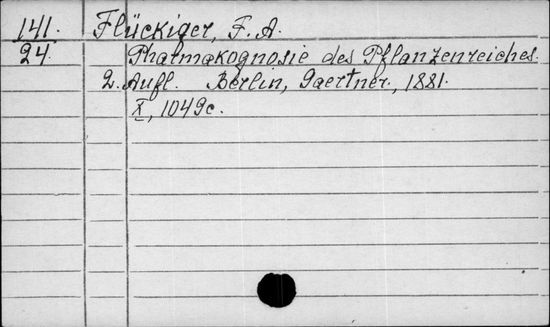 141. Flückiger, F. A.
24. Pharmakognosie des Pflanzenreiches.
2. Aufl. Berlin, Gaertner, 1881.
X, 1049c.